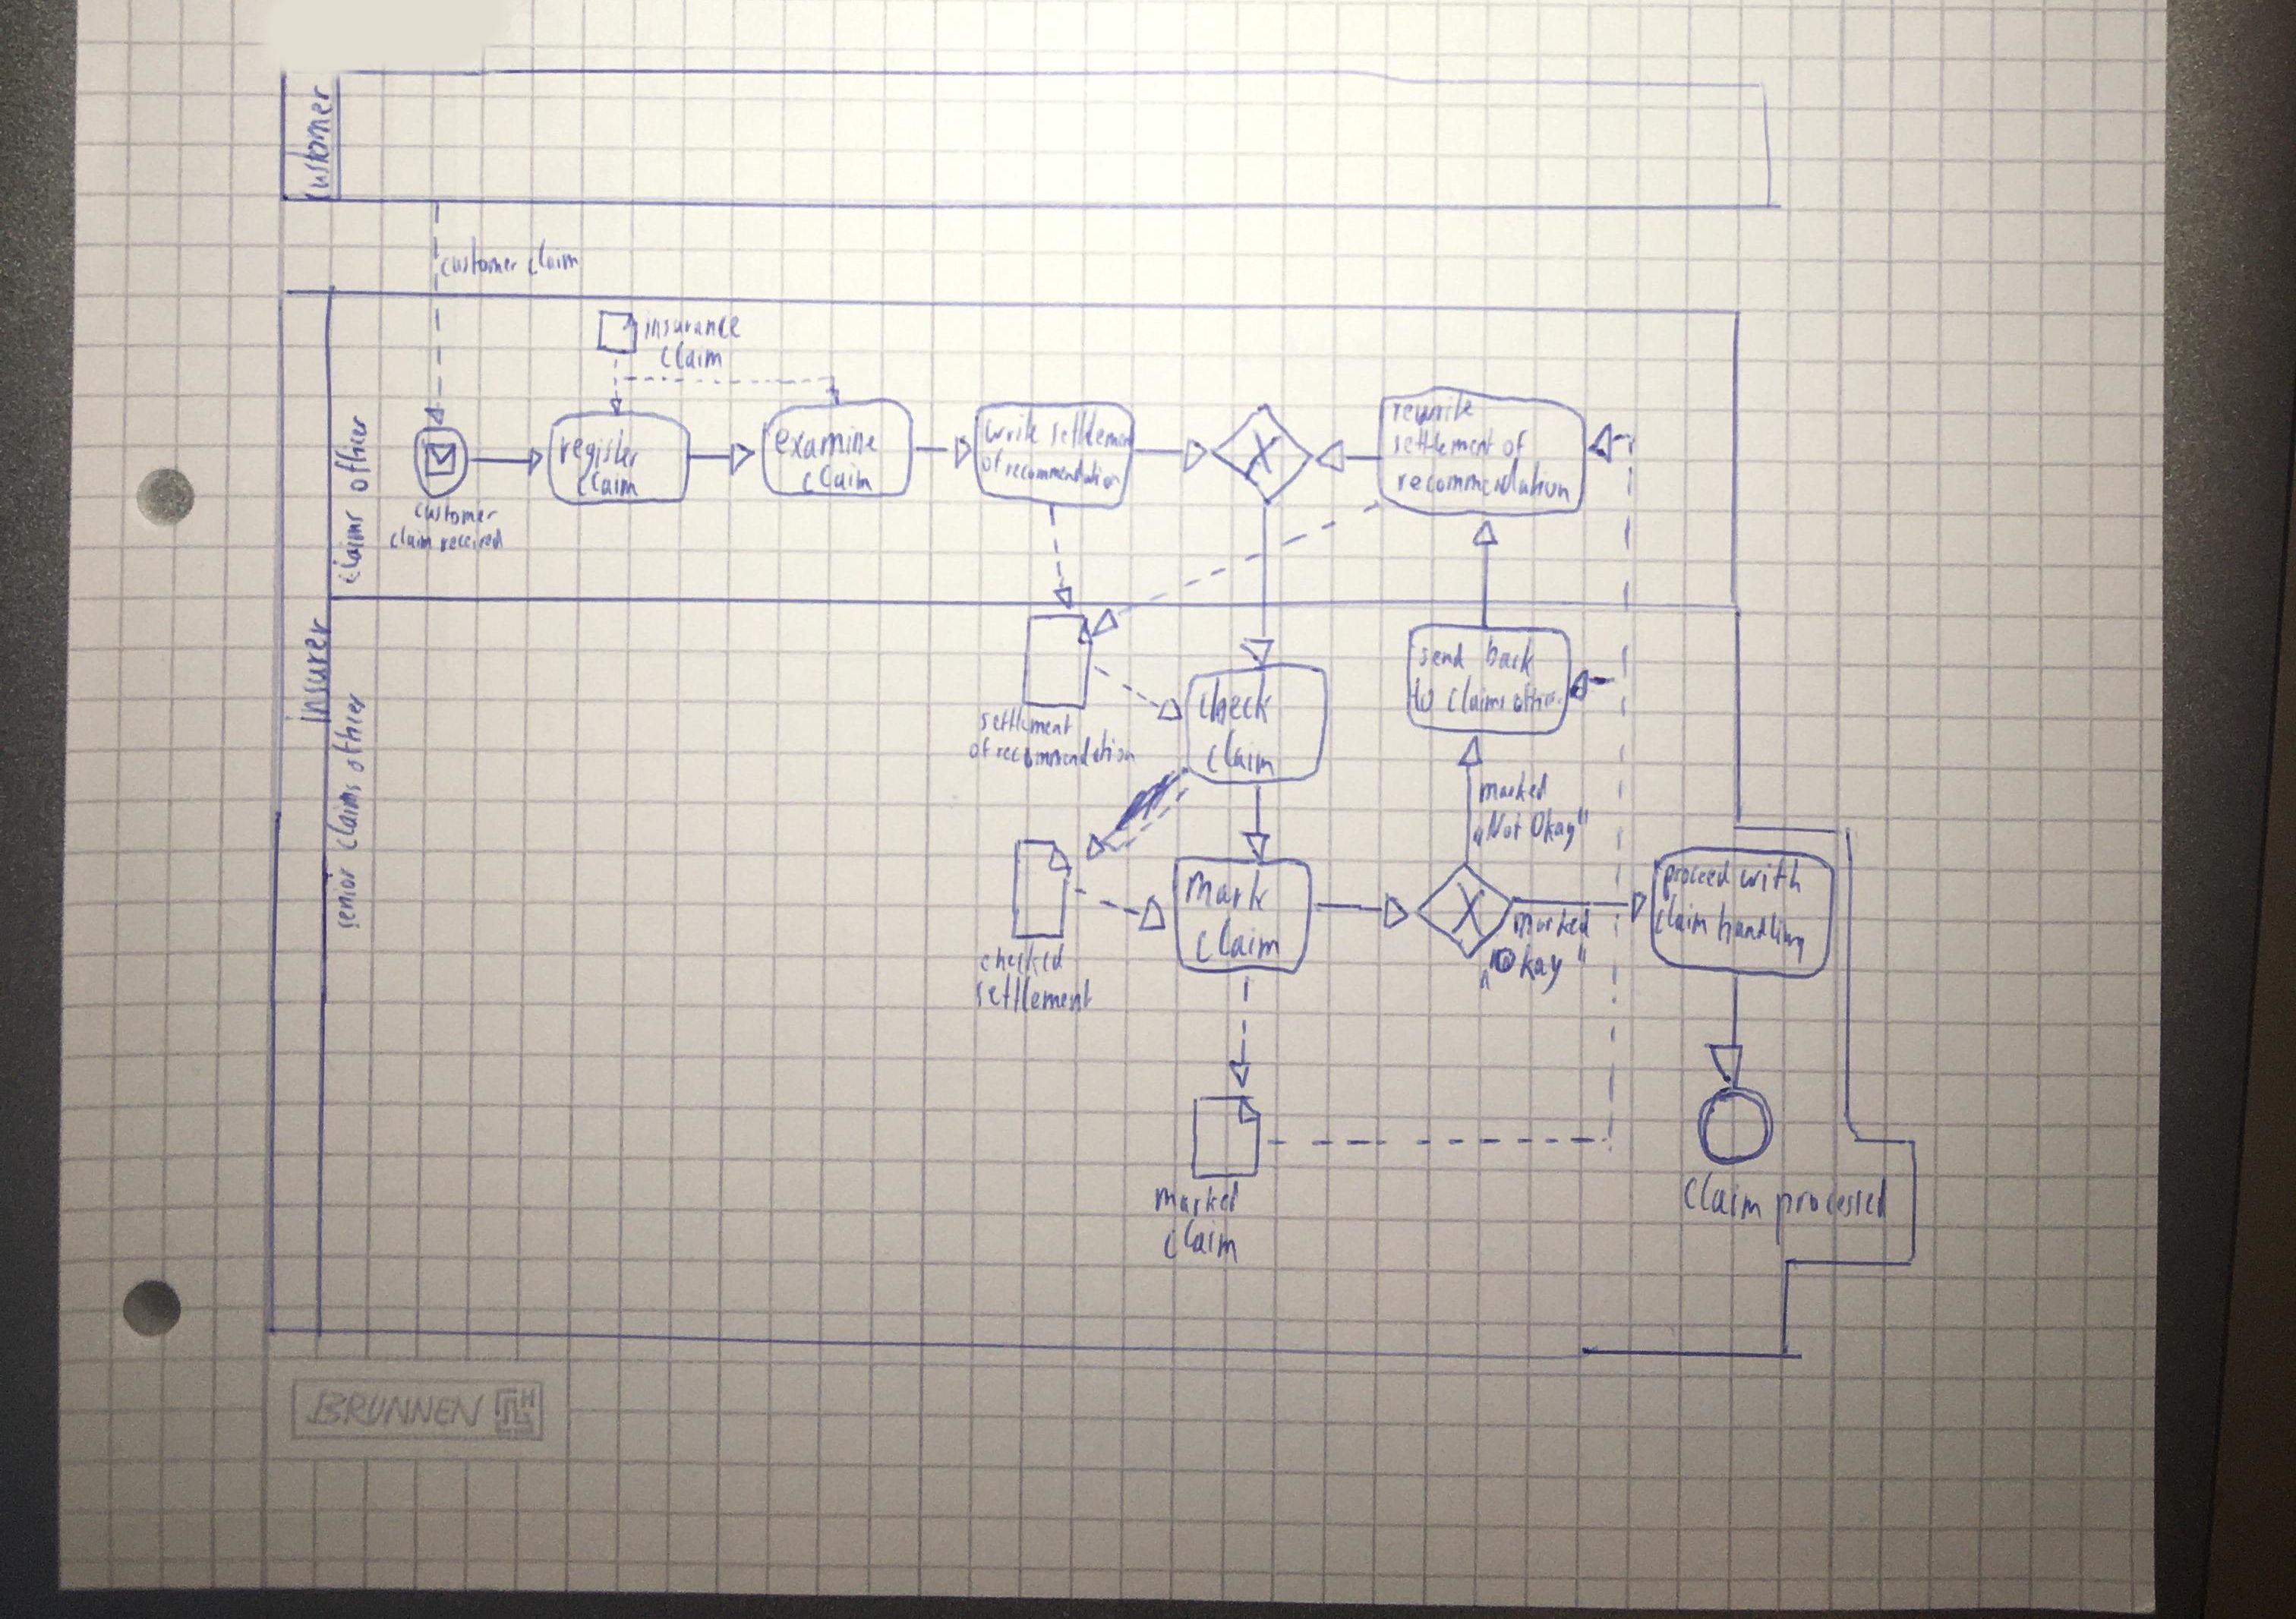 customer
customer claim
insurer
claims officer
senior claims officer
insurance
claim
customer
claim received
register
claim
examine
claim
write settlement
of recommendation
X
rewrite
settlement of
recommendation
settlement
of recommendation
check
claim
send back
to claims officer
marked
„Not Okay"
checked
settlement
mark
claim
X
marked
„Okay"
proceed with
claim handling
marked
claim
claim processed
BRUNNEN